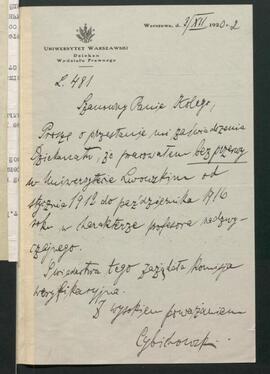 Warszawa, d. 7/XII 1920 r.
UNIWERSYTET WARSZAWSKI
Dziekan
Wydziału Prawnego
L. 481
Szanowny Panie Kolego,
Proszę o przesłanie mi zaświadczenia
Dziekanatu, że pracowałem bez przerwy
w Uniwersytecie Lwowskim od
stycznia 1912 do października 1916
roku w charakterze profesora nadzwy-
czajnego.
Świadectwa tego zażądała komisja
weryfikacyjna.
Z wysokiem poważaniem
Cybichowski